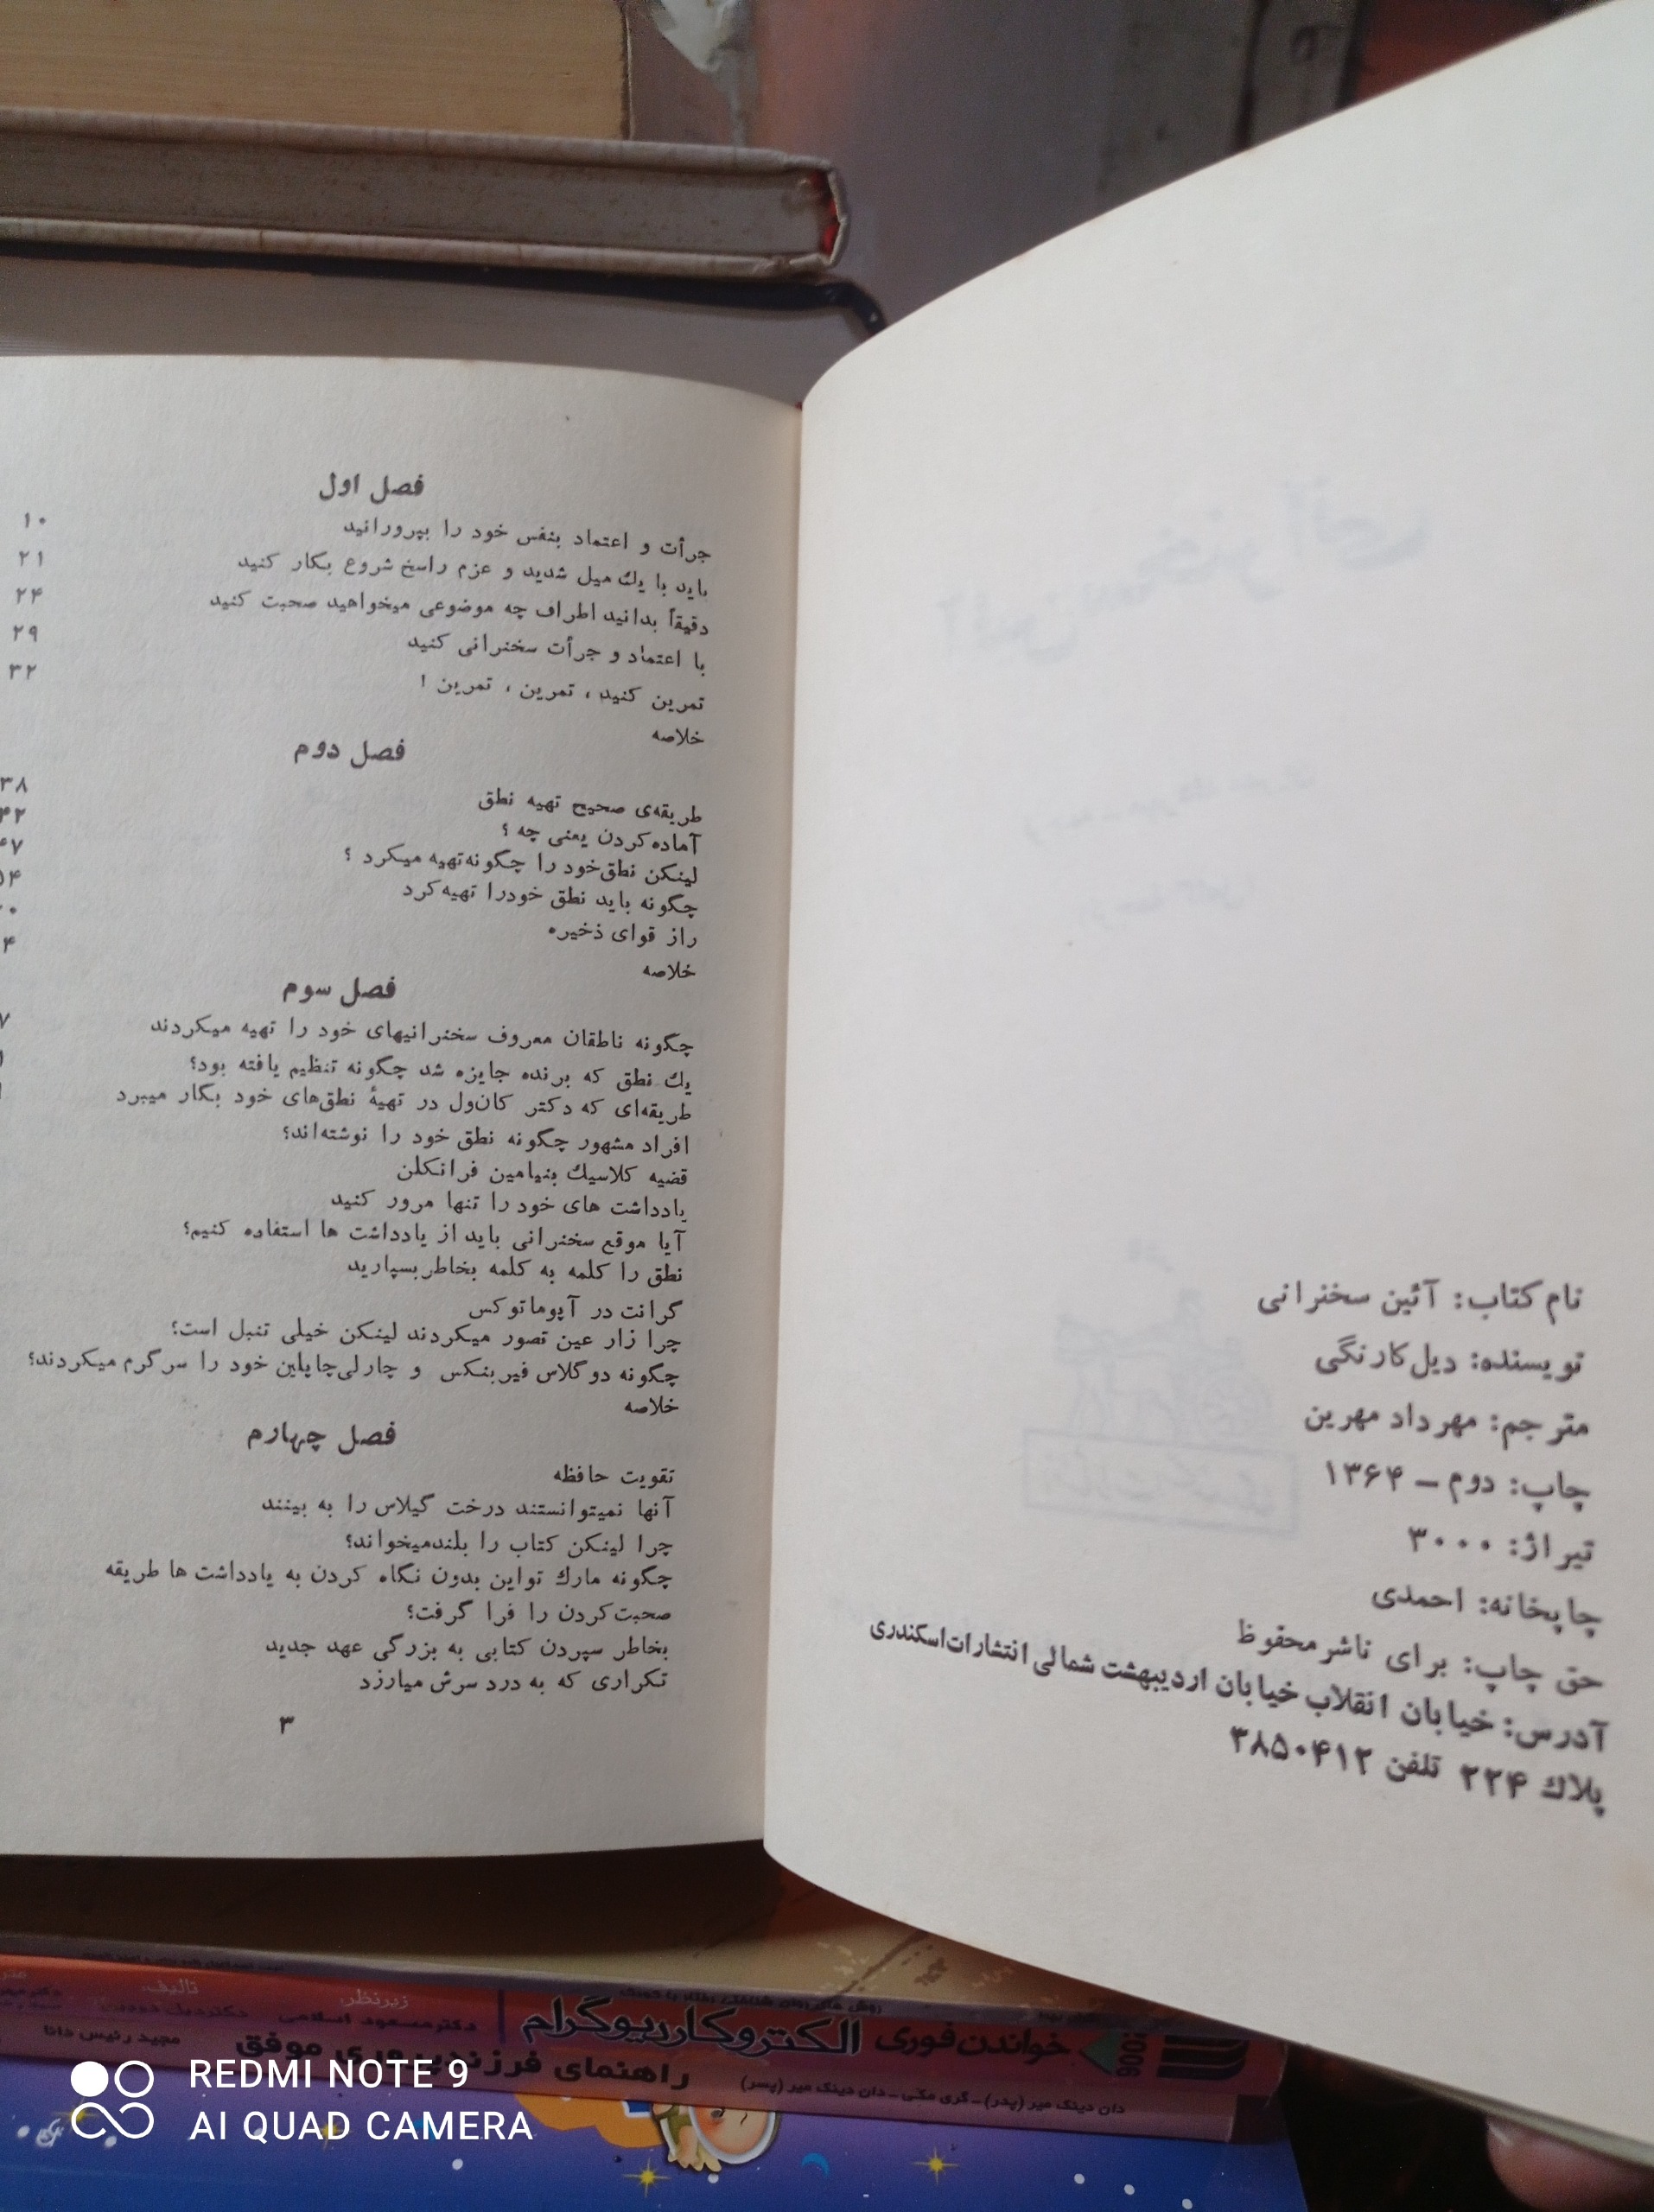 نام کتاب: آئین سخنرانی
نویسنده: دیل‌کارنگی
مترجم: مهرداد مهرین
چاپ: دوم – ۱۳۶۴
تیراژ: ۳۰۰۰
چاپخانه: احمدی
حق چاپ: برای ناشر محفوظ
آدرس: خیابان انقلاب خیابان اردیبهشت شمالی انتشارات اسکندری
پلاك ۲۲۴ تلفن ۳۸۵۰۴۱۲
فصل اول
جرأت و اعتماد بنفس خود را بپرورانید ۱۰
باید با یك میل شدید و عزم راسخ شروع بکار کنید ۲۱
دقیقاً بدانید اطراف چه موضوعی میخواهید صحبت کنید ۲۴
با اعتماد و جرأت سخنرانی کنید ۲۹
تمرین کنید ، تمرین ، تمرین ! ۳۲
خلاصه
فصل دوم
طریقه‌ی صحیح تهیه نطق ۳۸
آماده کردن یعنی چه ؟ ۴۲
لینکن نطق خود را چگونه تهیه میکرد ؟ ۴۷
چگونه باید نطق خودرا تهیه کرد ۵۴
راز قوای ذخیره
خلاصه ۴
فصل سوم
چگونه ناطقان معروف سخنرانیهای خود را تهیه میکردند ۷
یك نطق که برنده جایزه شد چگونه تنظیم یافته بود؟
طریقه‌ای که دکتر کان‌ول در تهیهٔ نطق‌های خود بکار میبرد
افراد مشهور چگونه نطق خود را نوشته‌اند؟
قضیه کلاسیك بنیامین فرانکلن
یادداشت های خود را تنها مرور کنید
آیا موقع سخنرانی باید از یادداشت ها استفاده کنیم؟
نطق را کلمه به کلمه بخاطر بسپارید
گرانت در آپوماتوکس
چرا زار عین تصور میکردند لینکن خیلی تنبل است؟
چگونه دوگلاس فیربنکس و چارلی‌چاپلین خود را سرگرم میکردند؟
خلاصه
فصل چهارم
تقویت حافظه
آنها نمیتوانستند درخت گیلاس را به بینند
چرا لینکن کتاب را بلندمیخواند؟
چگونه مارك تواین بدون نگاه کردن به یادداشت ها طریقه
صحبت کردن را فرا گرفت؟
بخاطر سپردن کتابی به بزرگی عهد جدید
تکراری که به درد سرش میارزد
۳
خواندن فوری الکتروکاردیوگرام
زیرنظر: تالیف:
دکتر مسعود اسلامی
دان دینک میر (پدر) - گری مکی - دان دینک میر (پسر)
راهنمای فرزندپروری موفق
مجید رئیس دانا
REDMI NOTE 9
AI QUAD CAMERA